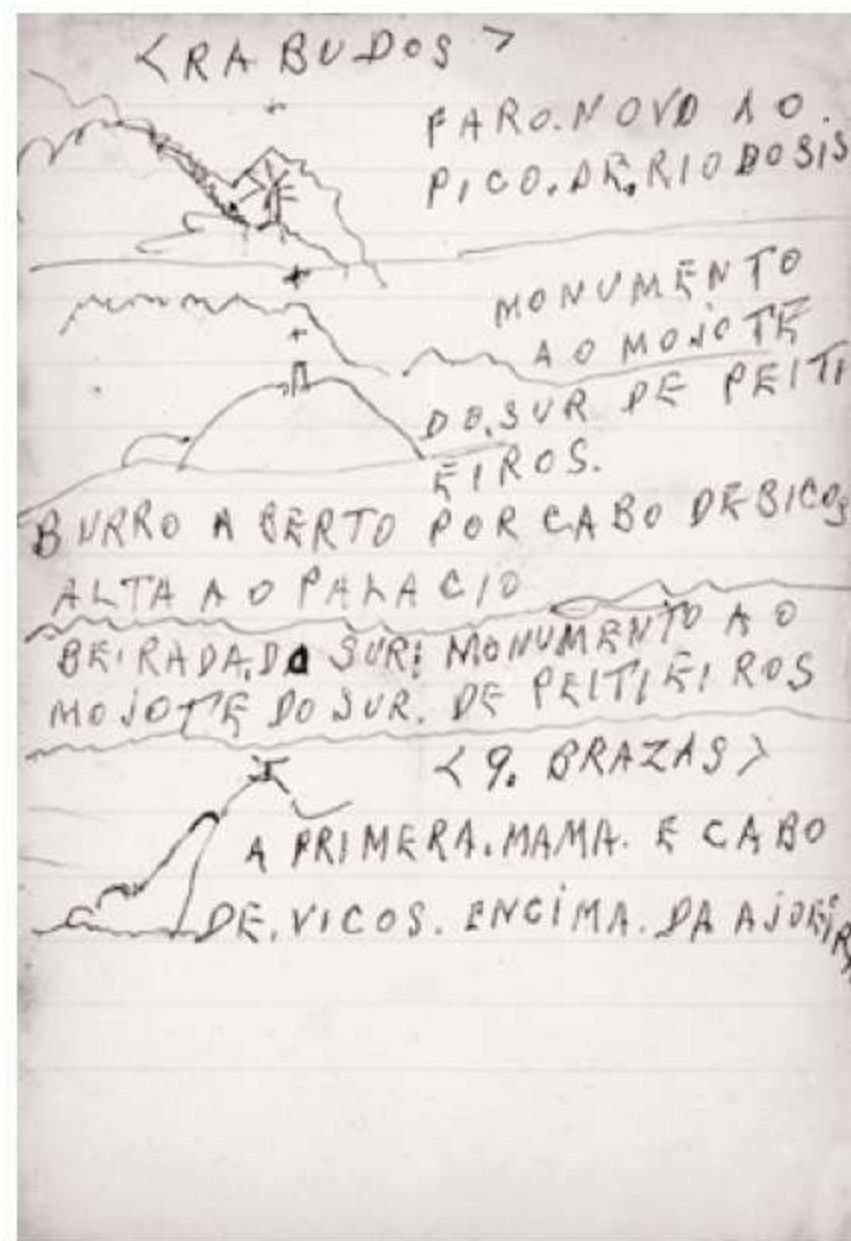 <RABUDOS>
FARO.NOVO AO.
PICO.DE.RIO DOSIS
MONUMENTO
AO MOJOTE
DO.SUR DE PEITI
EIROS.
BURRO ABERTO POR CABO DE BICOS
ALTA AO PALACIO
BEIRADA.DO SUR: MONUMENTO AO
MOJOTE DO SUR. DE PEITIEIROS
<9. BRAZAS>
A PRIMERA.MAMA. E CABO
DE.VICOS. ENCIMA. DA